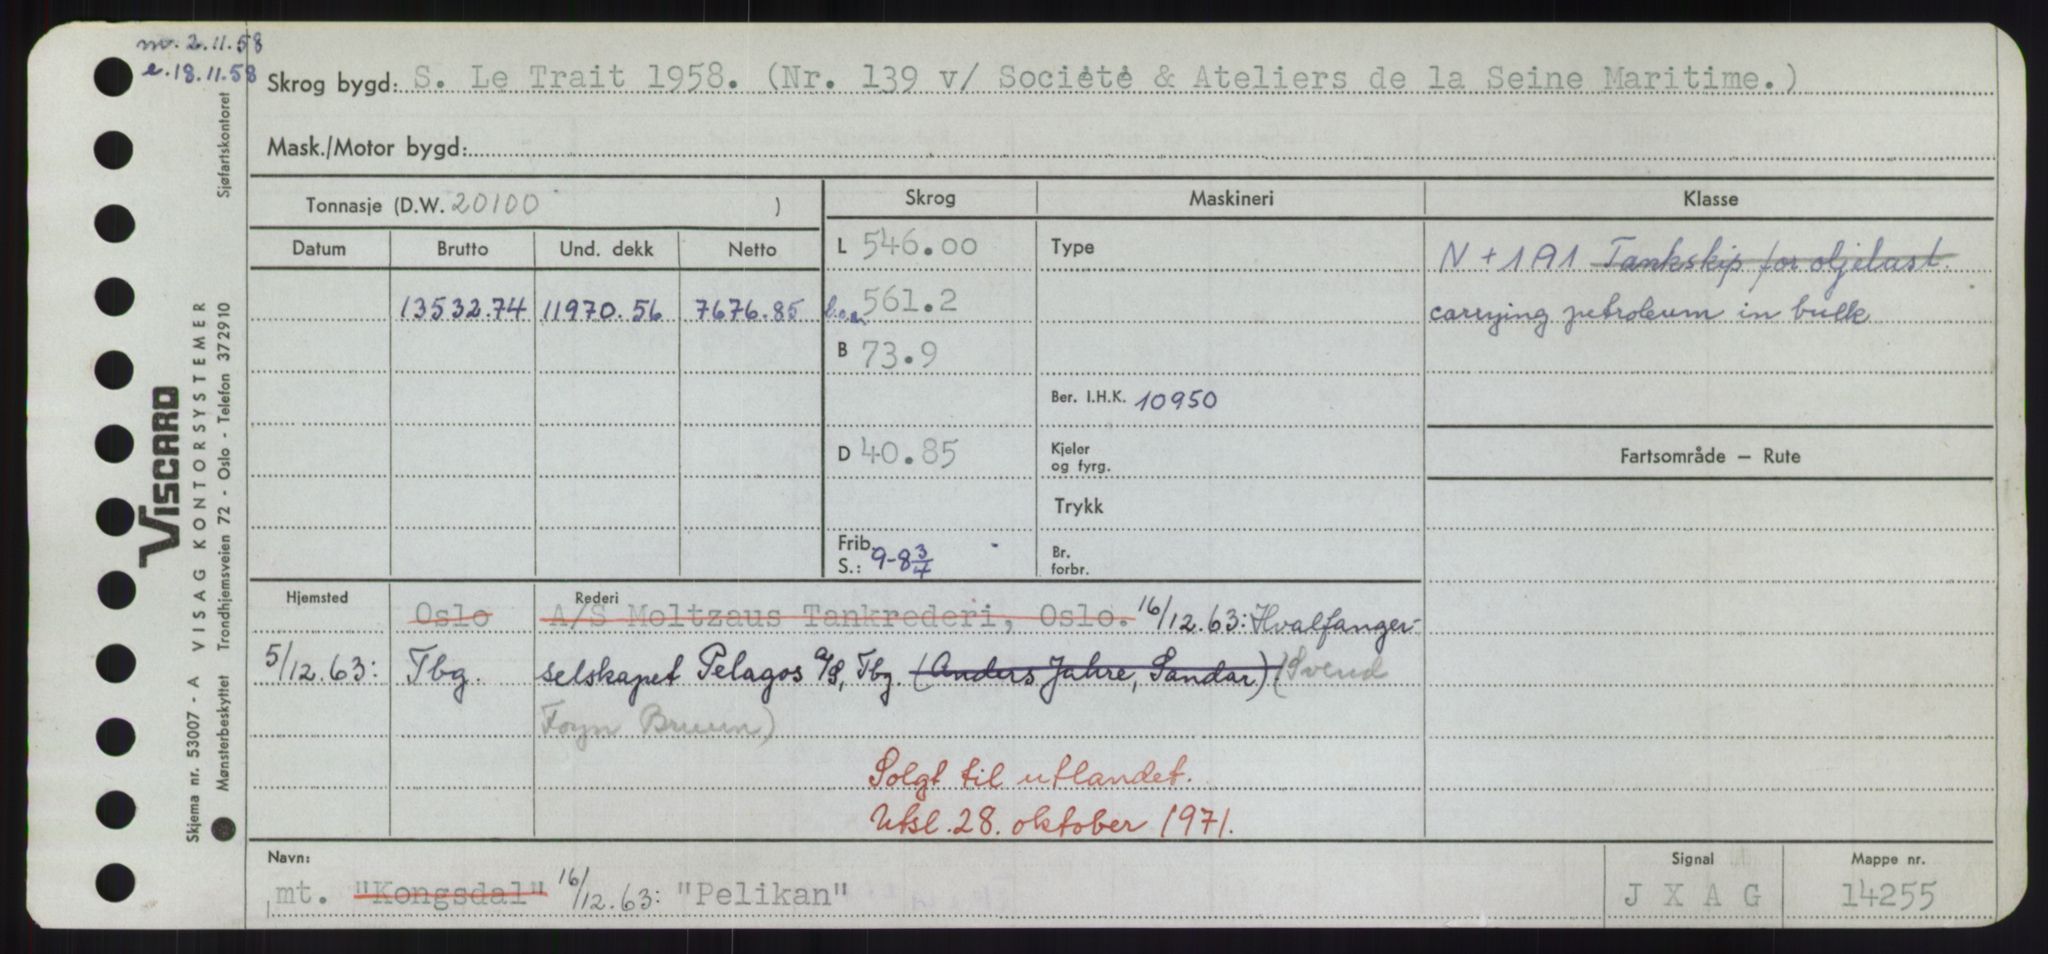 m. 2.11.58
e. 18.11.58
Skrog bygd: S. Le Trait 1958. (Nr. 139 v/ Société & Ateliers de la Seine Maritime.)
Mask./Motor bygd:
Tonnasje (D.W. 20100 )
Datum Brutto Und. dekk Netto
13532.74 11970.56 7676.85
Skrog Maskineri Klasse
L 546.00 Type
l.o.a. 561.2
B 73.9
Ber. I.H.K. 10950
D 40.85 Kjeler og fyrg.
Trykk
Frib. S.: 9-8 3/4 Br. forbr.
N + 1A1 Tankskip for oljelast.
carrying petroleum in bulk
Fartsområde — Rute
Hjemsted Rederi
Oslo A/S Moltzaus Tankrederi, Oslo. 16/12.63: Hvalfanger-
5/12.63: Tbg. selskapet Pelagos A/S, Tbg. (Anders Jahre, Sandar) (Svend
Foyn Bruun)
Solgt til utlandet.
Utsl. 28. oktober 1971.
Navn: Signal Mappe nr.
mt. "Kongsdal" 16/12.63: "Pelikan" J X A G 14255
Skjema nr. 53007 - A VISAG KONTORSYSTEMER
VISCARD
Mønsterbeskyttet Trondhjemsveien 72 - Oslo - Telefon 372910 Sjøfartskontoret